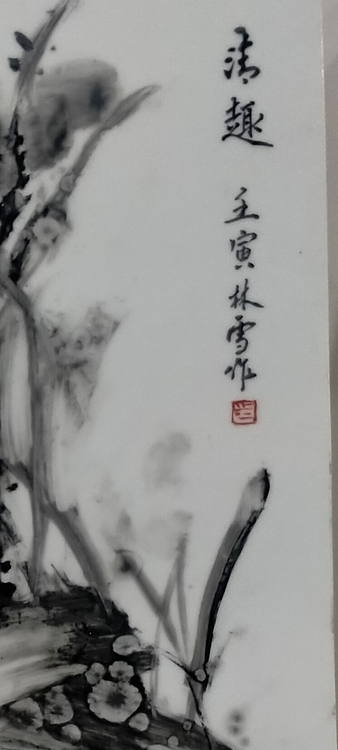 清趣
壬寅林雪作